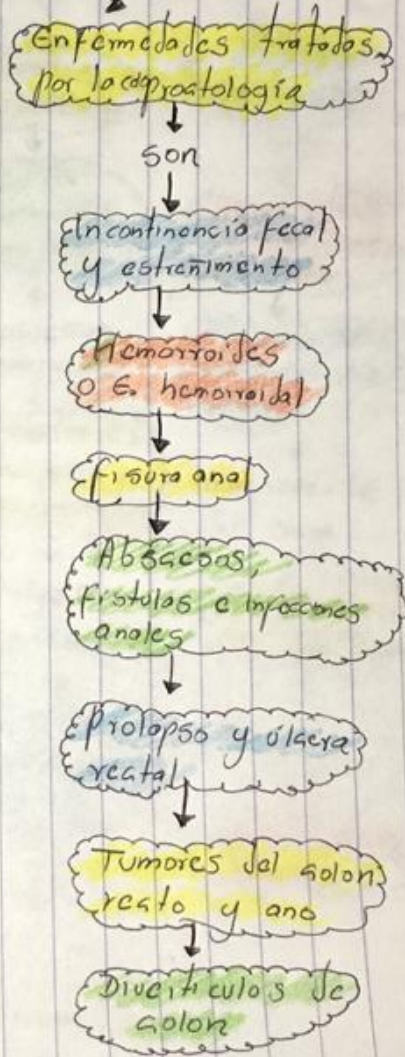 Enfermedades tratadas
por la coproctología
son
Incontinencia fecal
y estreñimento
Hemorroides
o E. hemorroidal
Fisura anal
Abscacos,
fistulas e infecciones
anales
Prolapso y úlcera
rectal
Tumores del colon,
recto y ano
Diverticulos de
colon